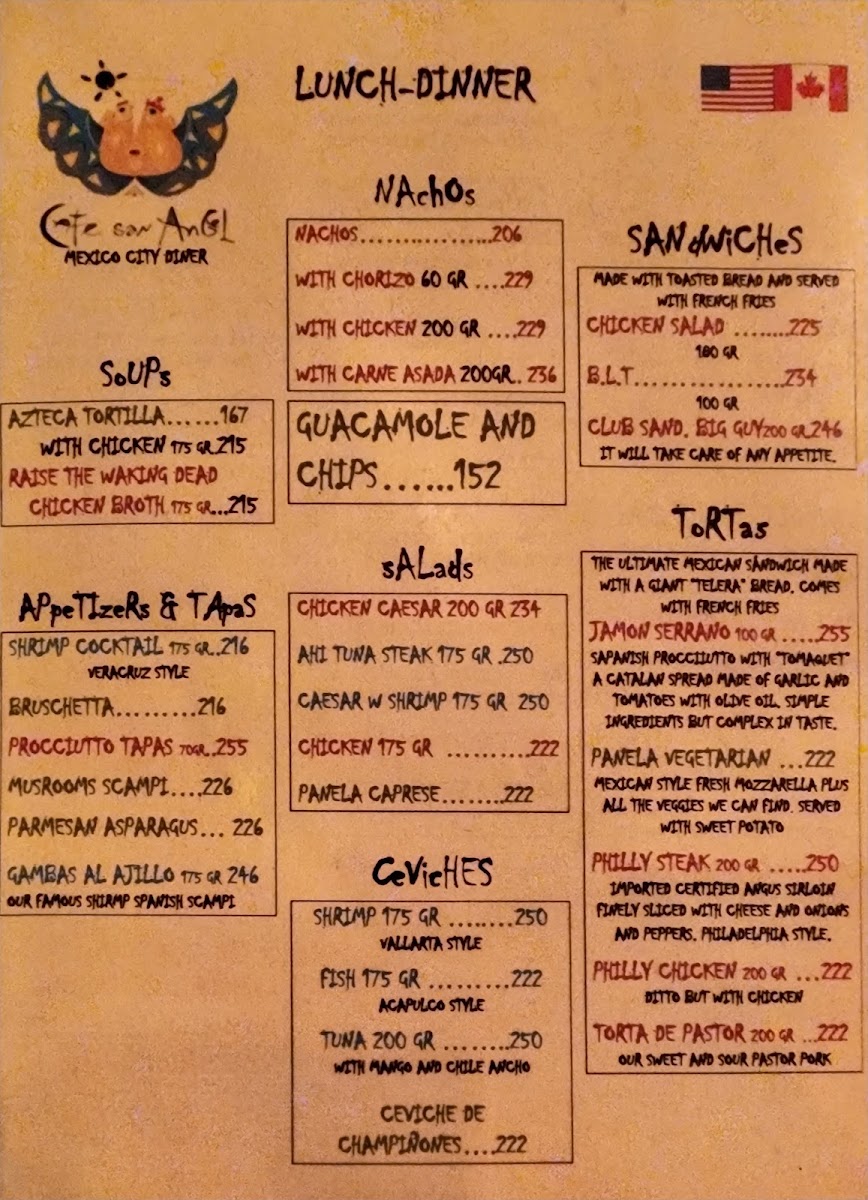 LUNCH-DINNER
Cafe san AnGL
MEXICO CITY DINER
SoUPs
AZTECA TORTILLA......167
WITH CHICKEN 175 GR.215
RAISE THE WAKING DEAD
CHICKEN BROTH 175 GR...215
APpeTIzeRs & TApaS
SHRIMP COCKTAIL 175 GR..216
VERACRUZ STYLE
BRUSCHETTA.........216
PROCCIUTTO TAPAS 70GR..255
MUSROOMS SCAMPI....226
PARMESAN ASPARAGUS... 226
GAMBAS AL AJILLO 175 GR 246
OUR FAMOUS SHIRMP SPANISH SCAMPI
NAchOs
NACHOS.................206
WITH CHORIZO 60 GR ....229
WITH CHICKEN 200 GR ....229
WITH CARNE ASADA 200GR.. 236
GUACAMOLE AND
CHIPS......152
sALads
CHICKEN CAESAR 200 GR 234
AHI TUNA STEAK 175 GR .250
CAESAR W SHRIMP 175 GR 250
CHICKEN 175 GR ..........222
PANELA CAPRESE........222
CeVicHES
SHRIMP 175 GR ........250
VALLARTA STYLE
FISH 175 GR .........222
ACAPULCO STYLE
TUNA 200 GR ........250
WITH MANGO AND CHILE ANCHO
CEVICHE DE
CHAMPIÑONES....222
SANdWiCHeS
MADE WITH TOASTED BREAD AND SERVED
WITH FRENCH FRIES
CHICKEN SALAD ........225
180 GR
B.L.T..................234
100 GR
CLUB SAND. BIG GUY200 GR.246
IT WILL TAKE CARE OF ANY APPETITE.
ToRTas
THE ULTIMATE MEXICAN SANDWICH MADE
WITH A GIANT "TELERA" BREAD. COMES
WITH FRENCH FRIES
JAMON SERRANO 100 GR .....255
SAPANISH PROCCIUTTO WITH "TOMAQUET"
A CATALAN SPREAD MADE OF GARLIC AND
TOMATOES WITH OLIVE OIL. SIMPLE
INGREDIENTS BUT COMPLEX IN TASTE.
PANELA VEGETARIAN ...222
MEXICAN STYLE FRESH MOZZARELLA PLUS
ALL THE VEGGIES WE CAN FIND. SERVED
WITH SWEET POTATO
PHILLY STEAK 200 GR .....250
IMPORTED CERTIFIED ANGUS SIRLOIN
FINELY SLICED WITH CHEESE AND ONIONS
AND PEPPERS. PHILADELPHIA STYLE.
PHILLY CHICKEN 200 GR ...222
DITTO BUT WITH CHICKEN
TORTA DE PASTOR 200 GR ...222
OUR SWEET AND SOUR PASTOR PORK